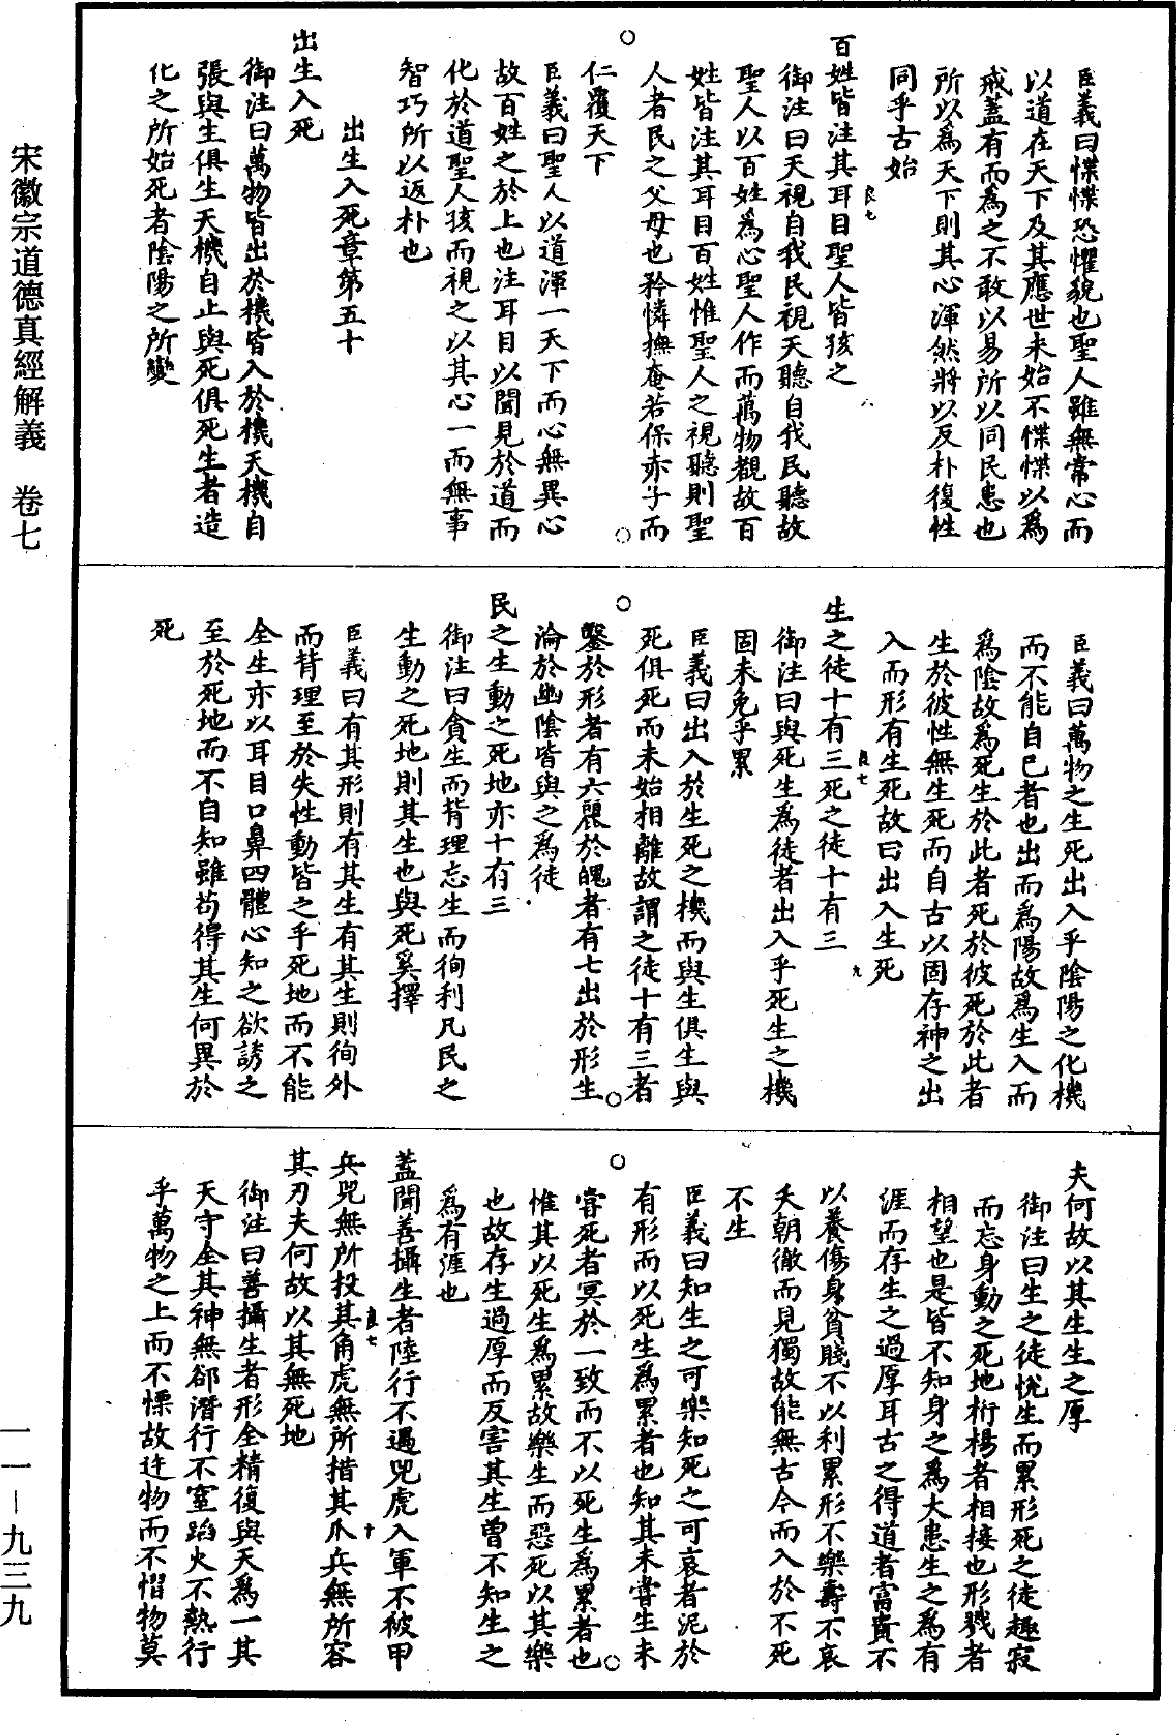 臣義曰惵惵恐懼貌也聖人雖無常心而
以道在天下及其應世未始不惵惵以為
戒蓋有而為之不敢以易所以同民患也
所以為天下則其心渾然將以反朴復性
同乎古始
百姓皆注其耳目聖人皆孩之
良七
八
御注曰天視自我民視天聽自我民聽故
聖人以百姓為心聖人作而萬物覩故百
姓皆注其耳目百姓惟聖人之視聽則聖
人者民之父母也矜憐撫奄若保赤子而
仁覆天下
臣義曰聖人以道渾一天下而心無異心
故百姓之於上也注耳目以聞見於道而
化於道聖人孩而視之以其心一而無事
智巧所以返朴也
出生入死章第五十
出生入死
御注曰萬物皆出於機皆入於機天機自
張與生俱生天機自止與死俱死生者造
化之所始死者陰陽之所變
臣義曰萬物之生死出入乎陰陽之化機
而不能自已者也出而為陽故為生入而
為陰故為死生於此者死於彼死於此者
生於彼性無生死而自古以固存神之出
入而形有生死故曰出入生死
生之徒十有三死之徒十有三
良七
九
御注曰與死生為徒者出入乎死生之機
固未免乎累
臣義曰出入於生死之機而與生俱生與
死俱死而未始相離故謂之徒十有三者
鑿於形者有六麗於魄者有七出於形生
淪於幽陰皆與之為徒
民之生動之死地亦十有三
御注曰貪生而背理忘生而徇利凡民之
生動之死地則其生也與死奚擇
臣義曰有其形則有其生有其生則徇外
而背理至於失性動皆之乎死地而不能
全生亦以耳目口鼻四體心知之欲誘之
至於死地而不自知雖苟得其生何異於
死
夫何故以其生生之厚
御注曰生之徒悅生而累形死之徒趣寂
而忘身動之死地桁楊者相接也形戮者
相望也是皆不知身之為大患生之為有
涯而存生之過厚耳古之得道者富貴不
以養傷身貧賤不以利累形不樂壽不哀
夭朝徹而見獨故能無古今而入於不死
不生
臣義曰知生之可樂知死之可哀者泥於
有形而以死生為累者也知其未嘗生未
嘗死者冥於一致而不以死生為累者也
惟其以死生為累故樂生而惡死以其樂
也故存生過厚而反害其生曾不知生之
為有涯也
蓋聞善攝生者陸行不遇兕虎入軍不被甲
兵兕無所投其角虎無所措其爪兵無所容
良七
十
其刃夫何故以其無死地
御注曰善攝生者形全精復與天為一其
天守全其神無郤潛行不窒蹈火不熱行
乎萬物之上而不慄故迕物而不慴物莫
宋徽宗道德真經解義　卷七
一一－九三九